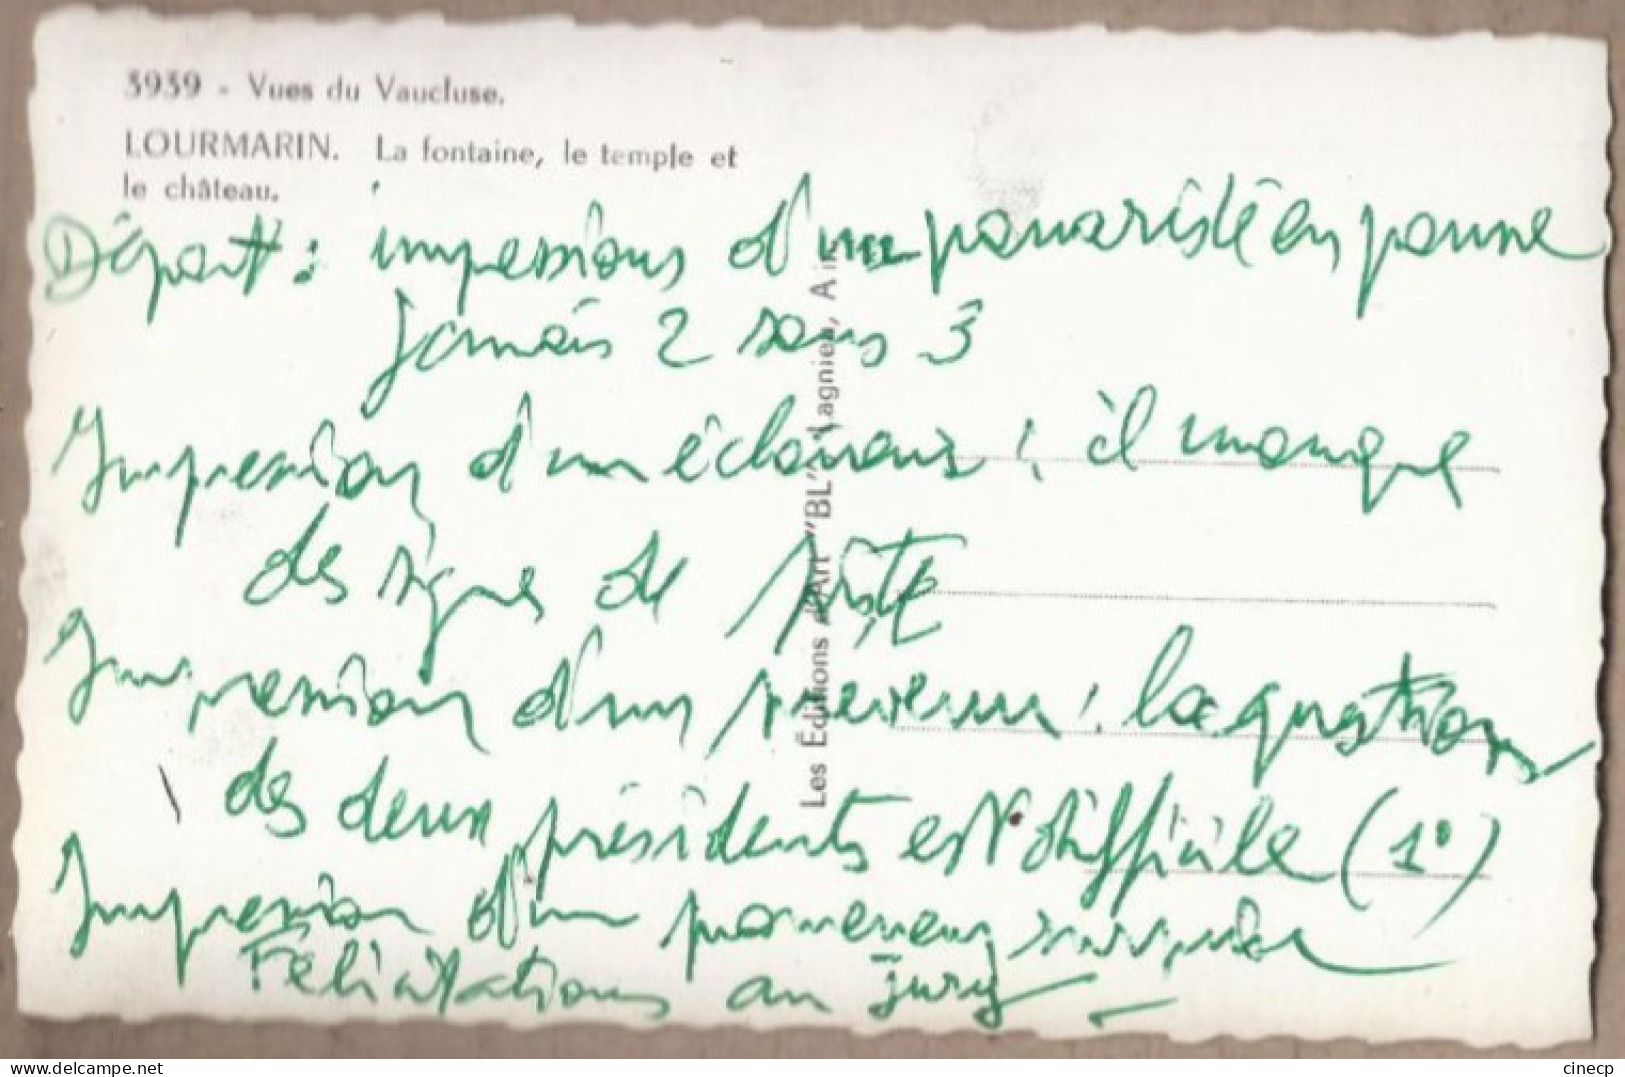 3939 - Vues du Vaucluse.
LOURMARIN. La fontaine, le temple et
le château.
Départ : impressions d'un en panne
Jamais 2 sans 3
Impression d'un éclaireur : il manque
des signes de piste
Impression d'un : la question
des deux présidents est difficile (1°)
Impression d'un promeneur
Félicitations au jury
Les Éditions d'Art "BL", Lagnieu, Ain
delcampe.net
cinecp